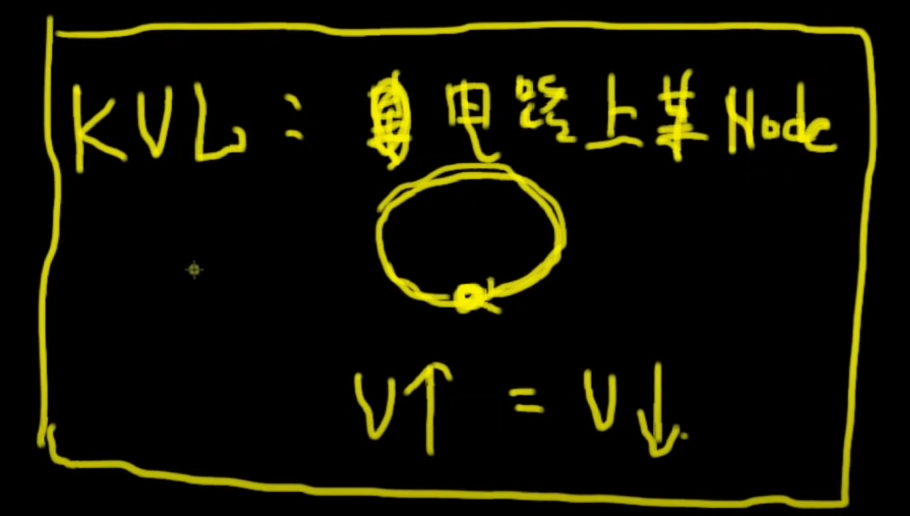 KVL: 电路上某Node
V↑ = V↓